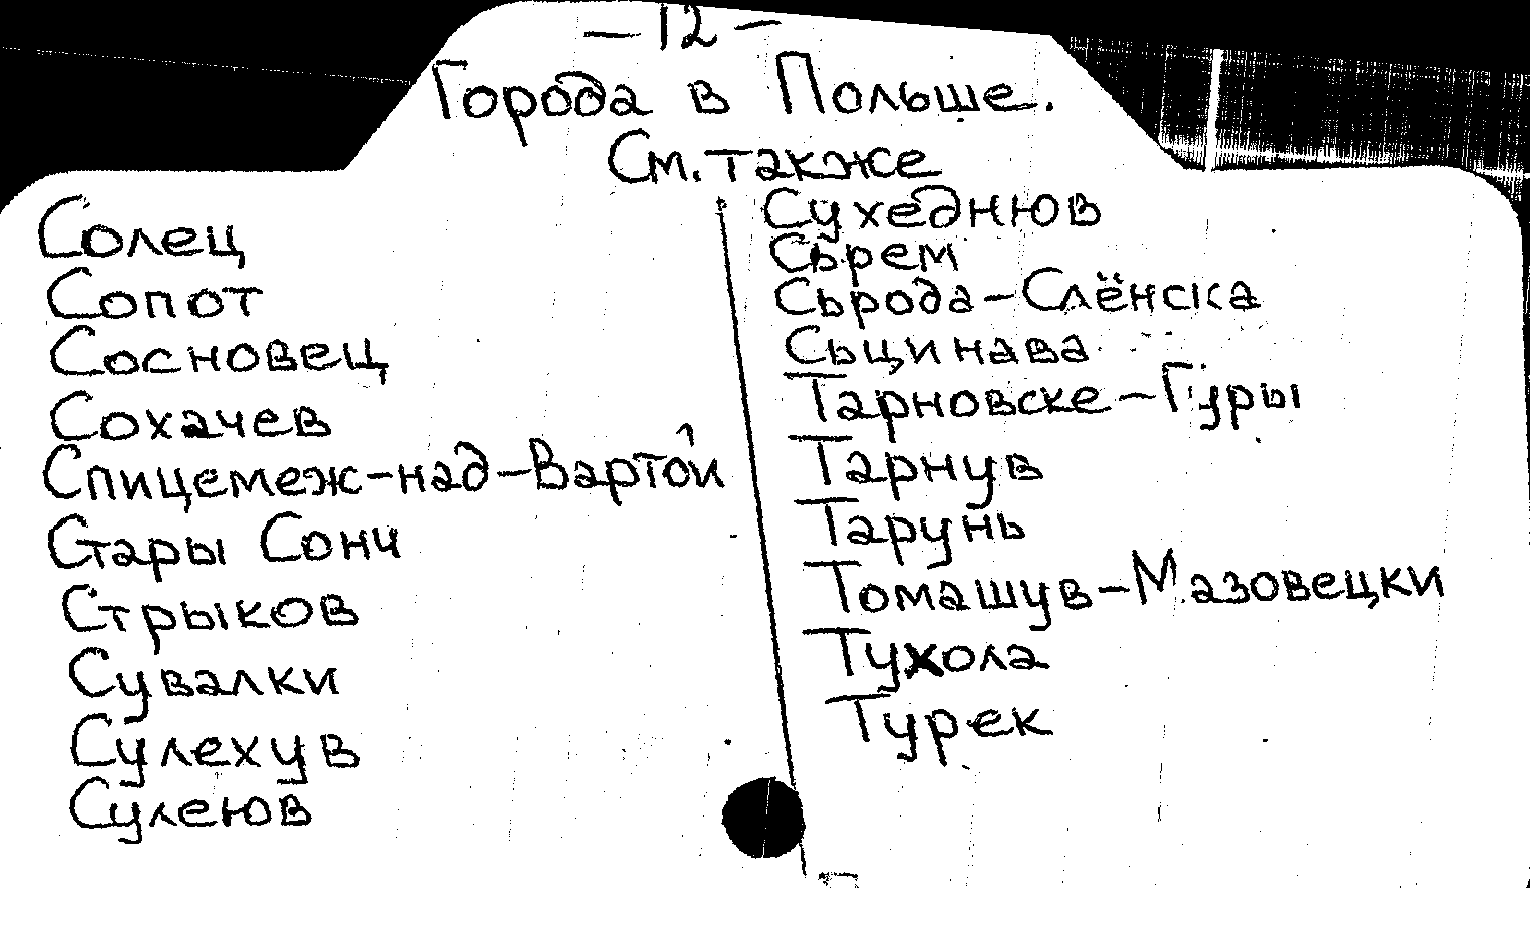 – 12 –
Города в Польше.
См. также
Солец
Сопот
Сосновец
Сохачев
Спицемеж-над-Вартой
Стары Сонч
Стрыков
Сувалки
Сулехув
Сулеюв
Сухеднюв
Сьрем
Сьрода-Слёнска
Сьцинава
Тарновске-Гуры
Тарнув
Тарунь
Томашув-Мазовецки
Тухола
Турек